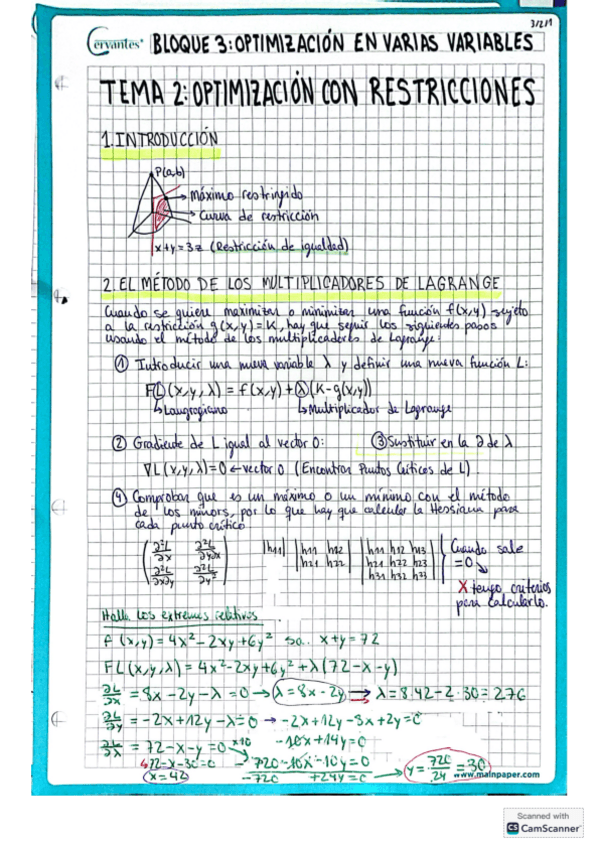 3/2/1
Cervantes® BLOQUE 3: OPTIMIZACIÓN EN VARIAS VARIABLES
TEMA 2: OPTIMIZACIÓN CON RESTRICCIONES
1. INTRODUCCIÓN
P(a,b)
→ Máximo restringido
→ Curva de restricción
x+y=3z (Restricción de igualdad)
2. EL MÉTODO DE LOS MULTIPLICADORES DE LAGRANGE
Cuando se quiere maximizar o minimizar una función f(x,y) sujeto
a la restricción g(x,y)=K, hay que seguir los siguientes pasos
usando el método de los multiplicadores de Lagrange:
① Introducir una nueva variable λ y definir una nueva función L:
FL(x,y,λ) = f(x,y)+λ(K-g(x,y))
↳Laugragiano ↳Multiplicador de Lagrange
② Gradiente de L igual al vector 0: ③ Sustituir en la ∂ de λ
∇L(x,y,λ)=0 ← vector 0 (Encontrar Puntos Críticos de L)
④ Comprobar que es un máximo o un mínimo con el método
de los minors, por lo que hay que calcular la Hessiana para
cada punto crítico
∂²L/∂x ∂²L/∂y∂x |h11| |h11 h12| |h11 h12 h13| Cuando sale
∂²L/∂x∂y ∂²L/∂y² |h21 h22| |h21 h22 h23| =0
|h31 h32 h33| X tengo criterios
para calcularlo.
Halla los extremos relativos
f(x,y)=4x²-2xy+6y² s.a. x+y=72
FL(x,y,λ)=4x²-2xy+6y²+λ(72-x-y)
∂L/∂x = 8x-2y-λ=0 → λ=8x-2y → λ=8·42-2·30=276
∂L/∂y = -2x+12y-λ=0 → -2x+12y-8x+2y=0
-10x+14y=0
∂L/∂λ = 72-x-y=0 x10 → 720-10x-10y=0
↳72-x-30=0
x=42 -720 +24y=0 → y=720/24=30
www.mainpaper.com
Scanned with
CS CamScanner